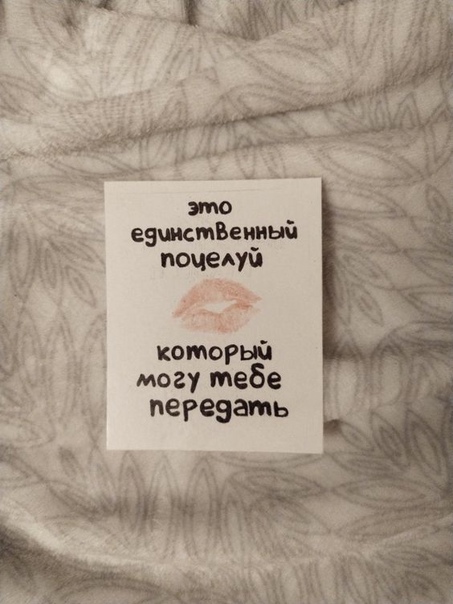 это
единственный
поцелуй
который
могу тебе
передать